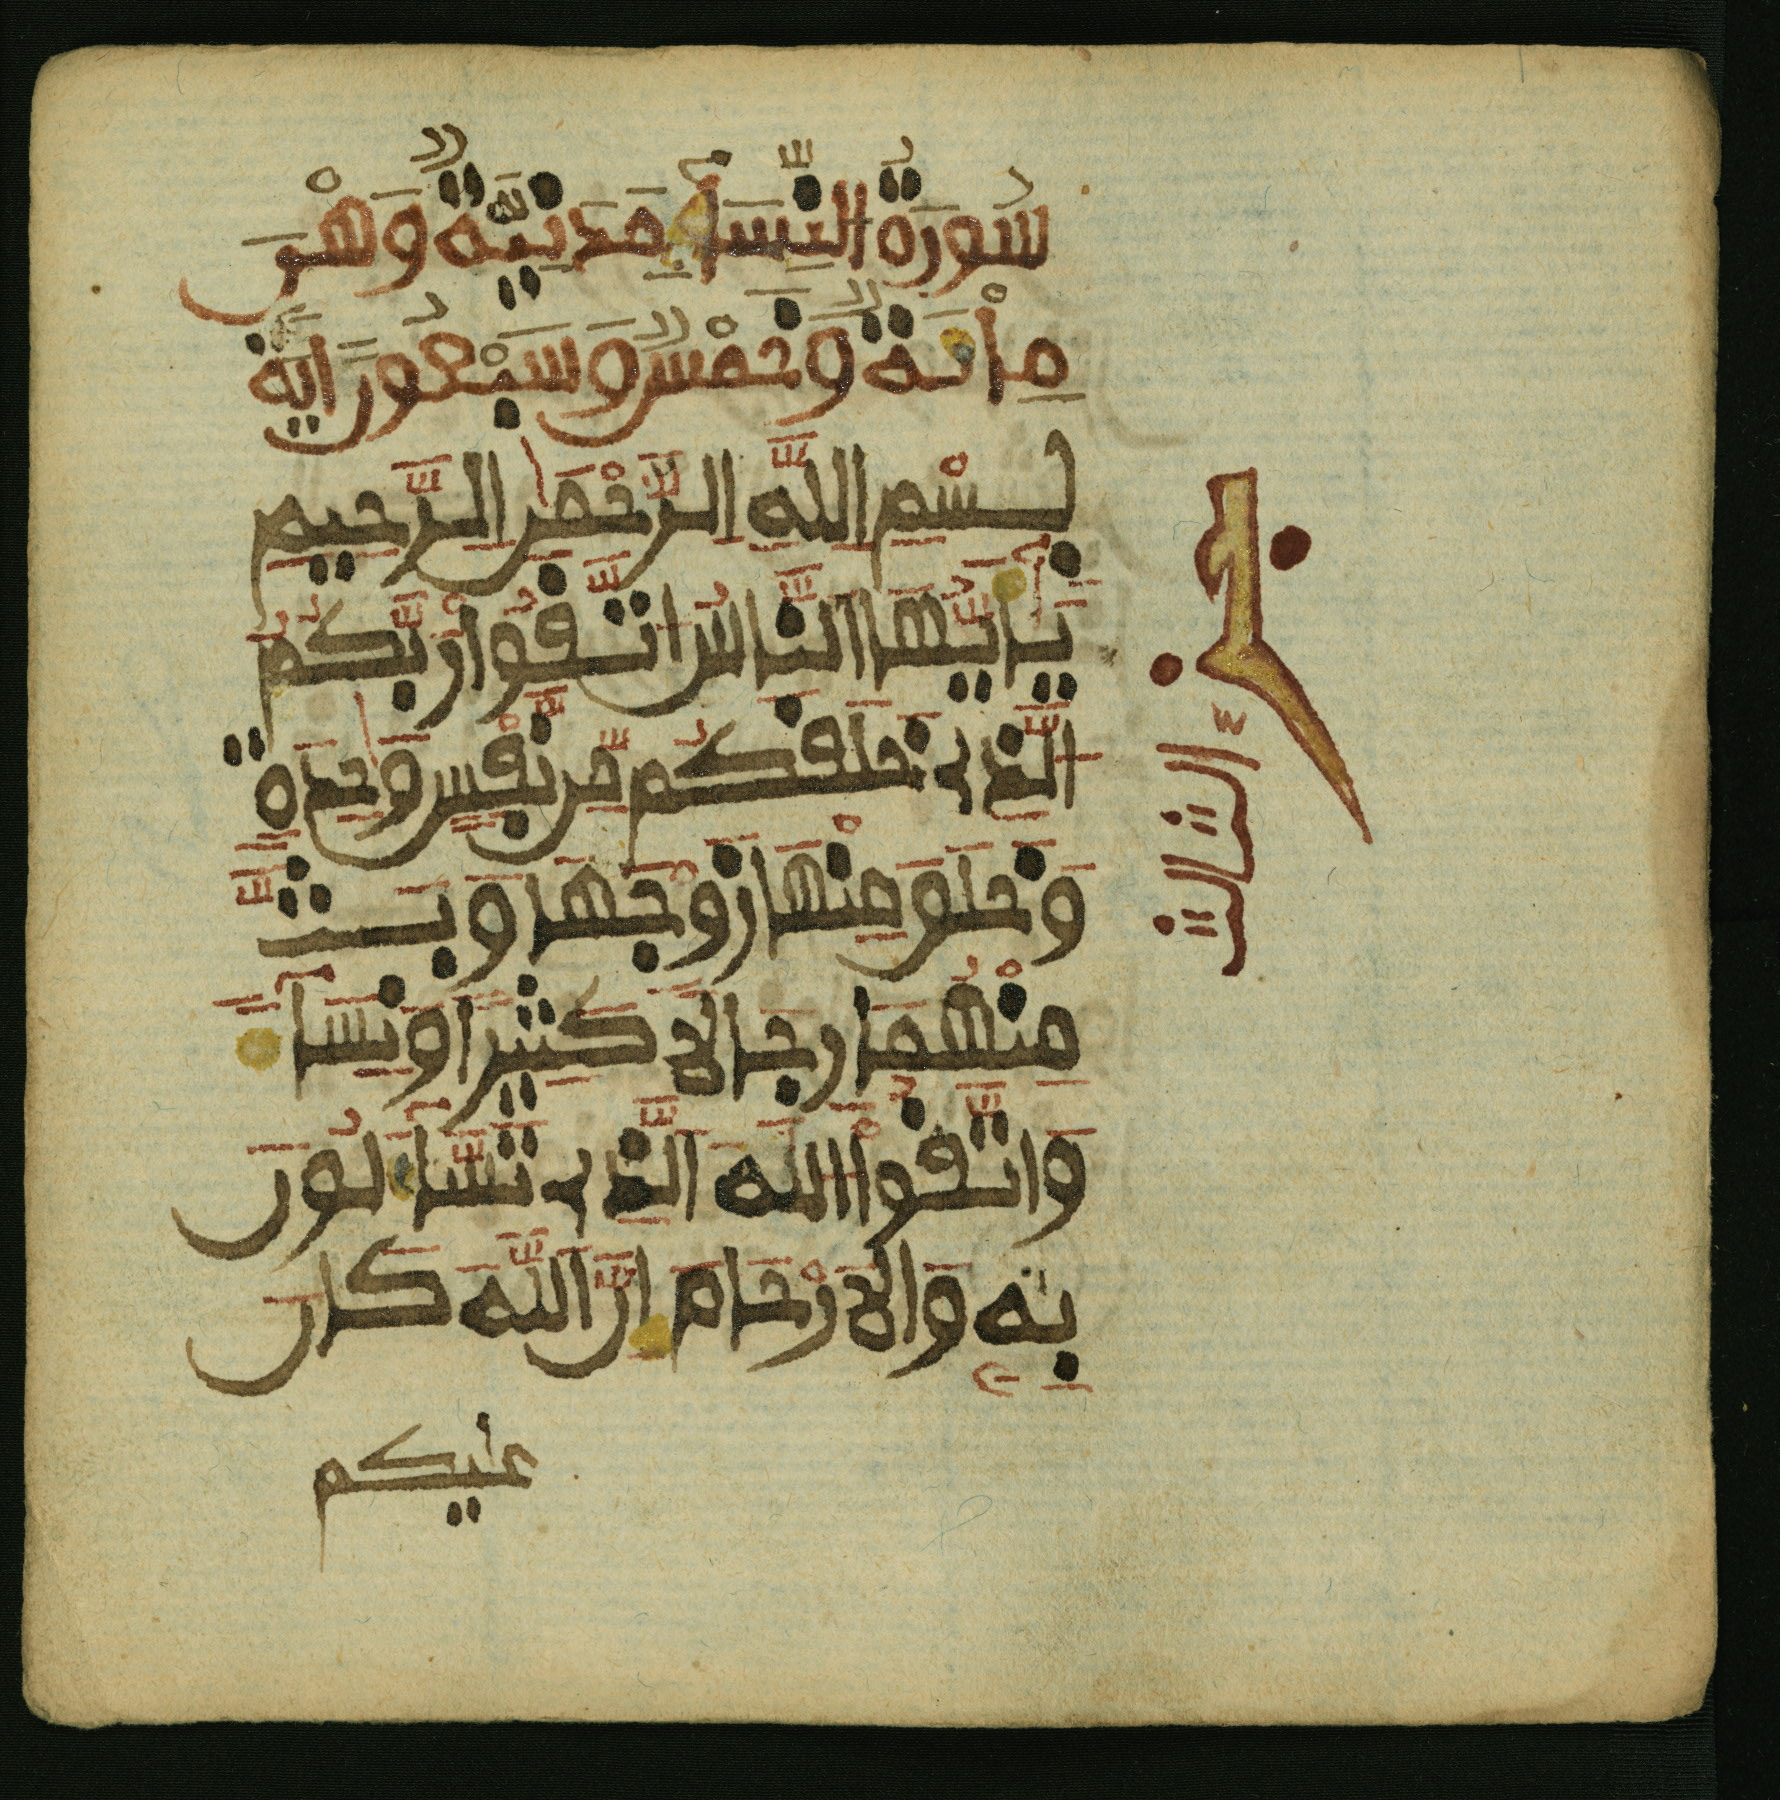 سُورَةُ النِّسَآءِ مَدَنِيَّةٌ وَهْىَ
مِاْئَةٌ وَخَمْسٌ وَسَبْعُونَ ايَةً
بِسْمِ اللَّهِ الرَّحْمَٰنِ الرَّحِيمِ
يَٰٓأَيُّهَا النَّاسُ اتَّقُواْ رَبَّكُمُ
الَّذِى خَلَقَكُم مِّن نَّفْسٍ وَٰحِدَةٍ
وَخَلَقَ مِنْهَا زَوْجَهَا وَبَثَّ
مِنْهُمَا رِجَالًا كَثِيرًا وَنِسَآءً
وَاتَّقُواْ اللَّهَ الَّذِى تَسَّآءَلُونَ
بِهِ وَالَارْحَامَ إِنَّ اللَّهَ كَانَ
عليكم
حزب
الثالث